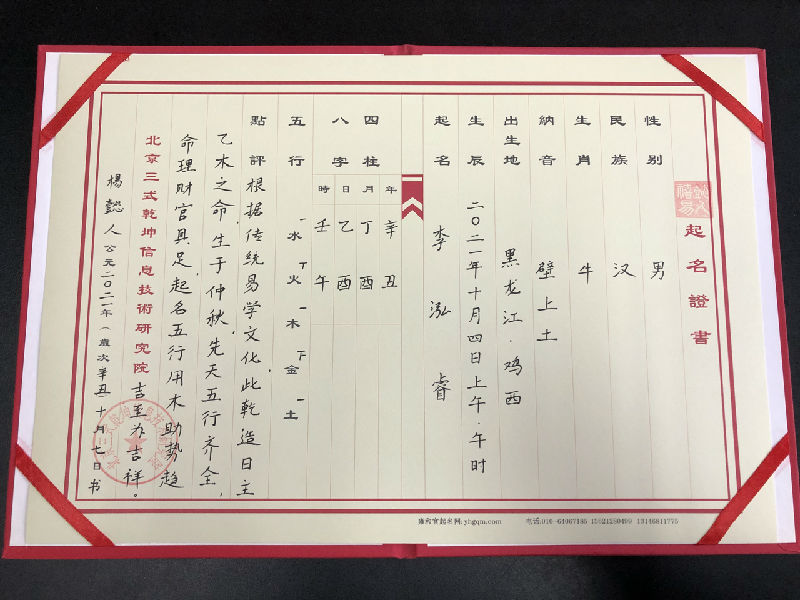 起名證書
性别 男
民族 汉
生肖 牛
納音 壁上土
出生地 黑龙江·鸡西
生辰 二〇二一年十月四日上午·午时
起名 李泓睿
四柱 八字
年 辛丑
月 丁酉
日 乙酉
時 壬午
五行 水 火 木 金 土
點評 根据传统易学文化,此乾造日主
乙木之命,生于仲秋,先天五行齐全,
命理财官具足,起名五行用木助势趋
吉至为吉祥。
北京三式乾坤信息技術研究院
楊懿人 公元二〇二一年(歲次辛丑)十月七日书
雍和宫起名网:yhgqm.com 电话:010-64067185 15621280499 13146811775